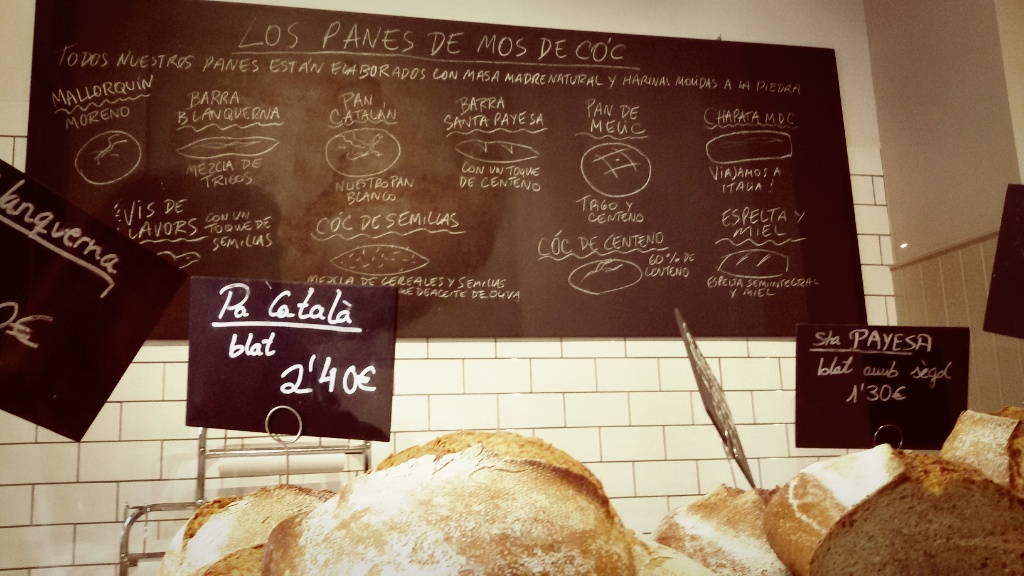 LOS PANES DE MOS DE CÓC
TODOS NUESTROS PANES ESTÁN ELABORADOS CON MASA MADRE NATURAL Y HARINAS MOLIDAS A LA PIEDRA
MALLORQUÍN
MORENO
BARRA
BLANQUERNA
MEZCLA DE
TRIGOS
PAN
CATALÁN
NUESTRO PAN
BLANCO
BARRA
SANTA PAYESA
CON UN TOQUE
DE CENTENO
PAN DE
TRIGO Y
CENTENO
CHAPATA MDC
VIAJAMOS A
ITALIA!
VIS DE
LAVORS
CON UN
TOQUE DE
SEMILLAS
CÓC DE SEMILLAS
MEZCLA DE CEREALES Y SEMILLAS
DE ACEITE DE OLIVA
CÓC DE CENTENO
60% DE
CENTENO
ESPELTA Y
MIEL
ESPELTA SEMIINTEGRAL
Y MIEL
lanquerna
€
Pa Català
blat
2'40€
Sta PAYESA
blat amb sègol
1'30€